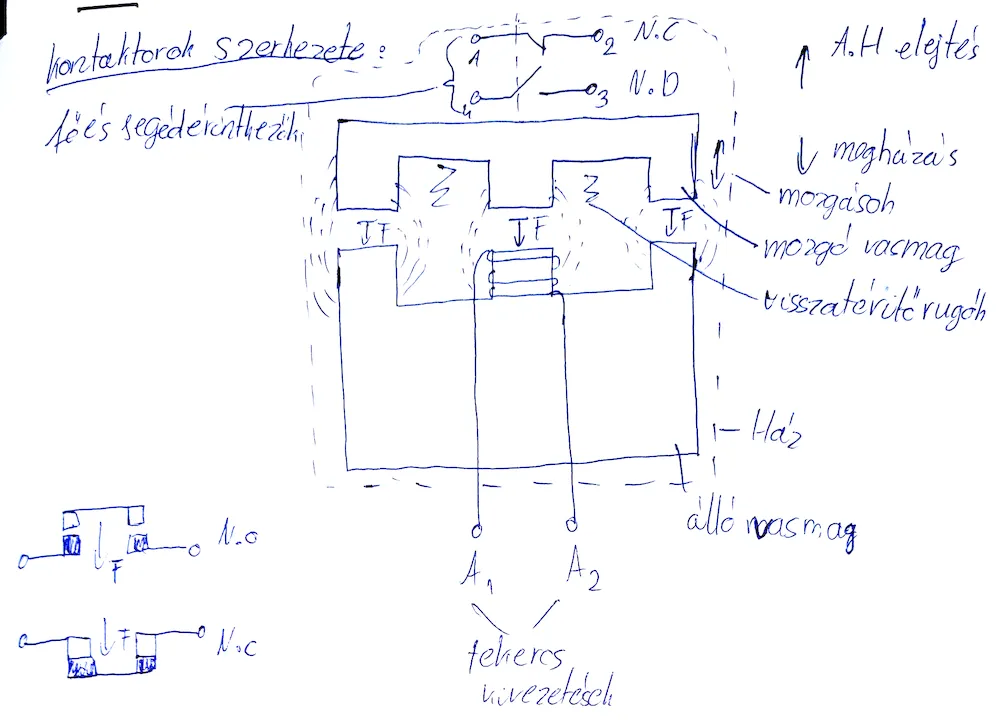 kontaktorok szerkezete:
fő és segédérintkezők
1
2
N.C
4
3
N.O
A.H elejtés
megházás
mozgások
mozgó vasmag
visszatérítő rugók
F
F
F
Ház
álló vasmag
A1
A2
tekercs
kivezetések
N.O
F
F
N.C